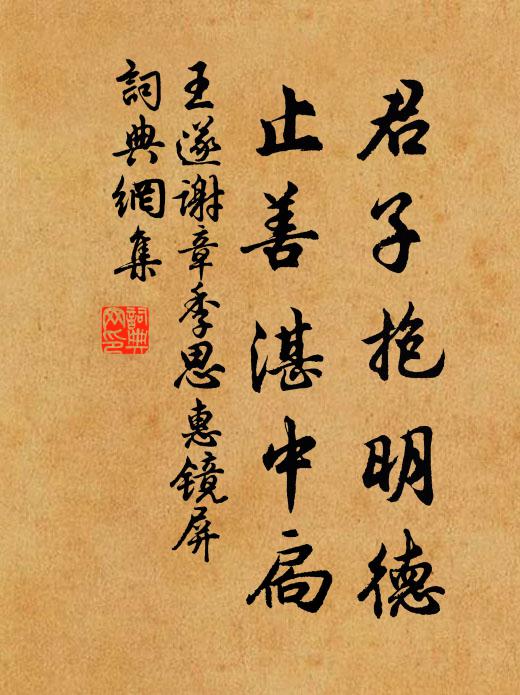 君子抱明德
止善湛中扃
王遂谢章季思惠镜屏
詞典網集
詞典網印